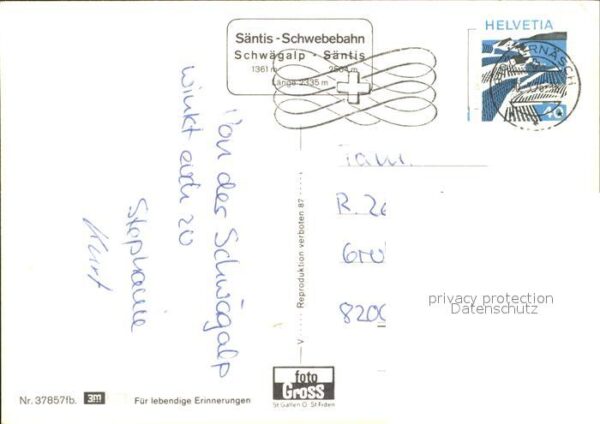 Säntis - Schwebebahn
Schwägalp - Säntis
1361 m 2504 m
Länge 2335 m
HELVETIA
40
Von der Schwägalp
winkt euch zu
Stephanie
Kurt
Fam.
R. Ze
820
V
Reproduktion verboten 87
privacy protection
Datenschutz
foto
Gross
St Gallen O. St Fiden
Nr. 37857fb. 3m Für lebendige Erinnerungen